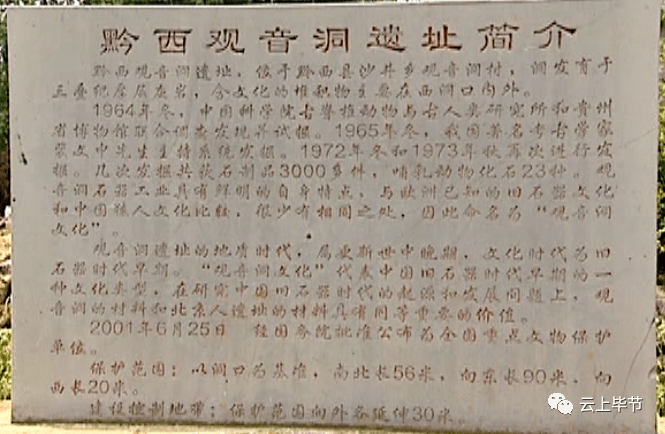 黔西观音洞遗址简介
黔西观音洞遗址，位于黔西县沙井乡观音洞村，洞发育于
三叠纪厚层灰岩，含文化的堆积物主要在西洞口内外。
1964年冬，中国科学院古脊椎动物与古人类研究所和贵州
省博物馆联合调查发现并试掘。1965年冬，我国著名考古学家
裴文中先生主持系统发掘。1972年冬和1973年秋再次进行发
掘。几次发掘共获石制品3000多件，哺乳动物化石23种。观
音洞石器工业具有鲜明的自身特点，与欧洲已知的旧石器文化
和中国猿人文化比较，很少有相同之处，因此命名为“观音洞
文化”。
观音洞遗址的地质时代，属更新世中晚期，文化时代为旧
石器时代早期。“观音洞文化”代表中国旧石器时代早期的一
种文化类型，在研究中国旧石器时代的起源和发展问题上，观
音洞的材料和北京人遗址的材料具有同等重要的价值。
2001年6月25日 经国务院批准公布为全国重点文物保护
单位。
保护范围：以洞口为基准，南北长56米，向东长90米，向
西长20米。
建设控制地带：保护范围向外各延伸30米。
云上毕节